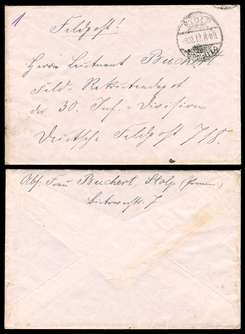 1
Feldpost!
Herrn Leutnant Buchert
Feld-Rekrutendepot
der 30. Inf.-Division
Deutsche Feldpost 718.
Abs. Frau Buchert, Stolp (Pomm.)